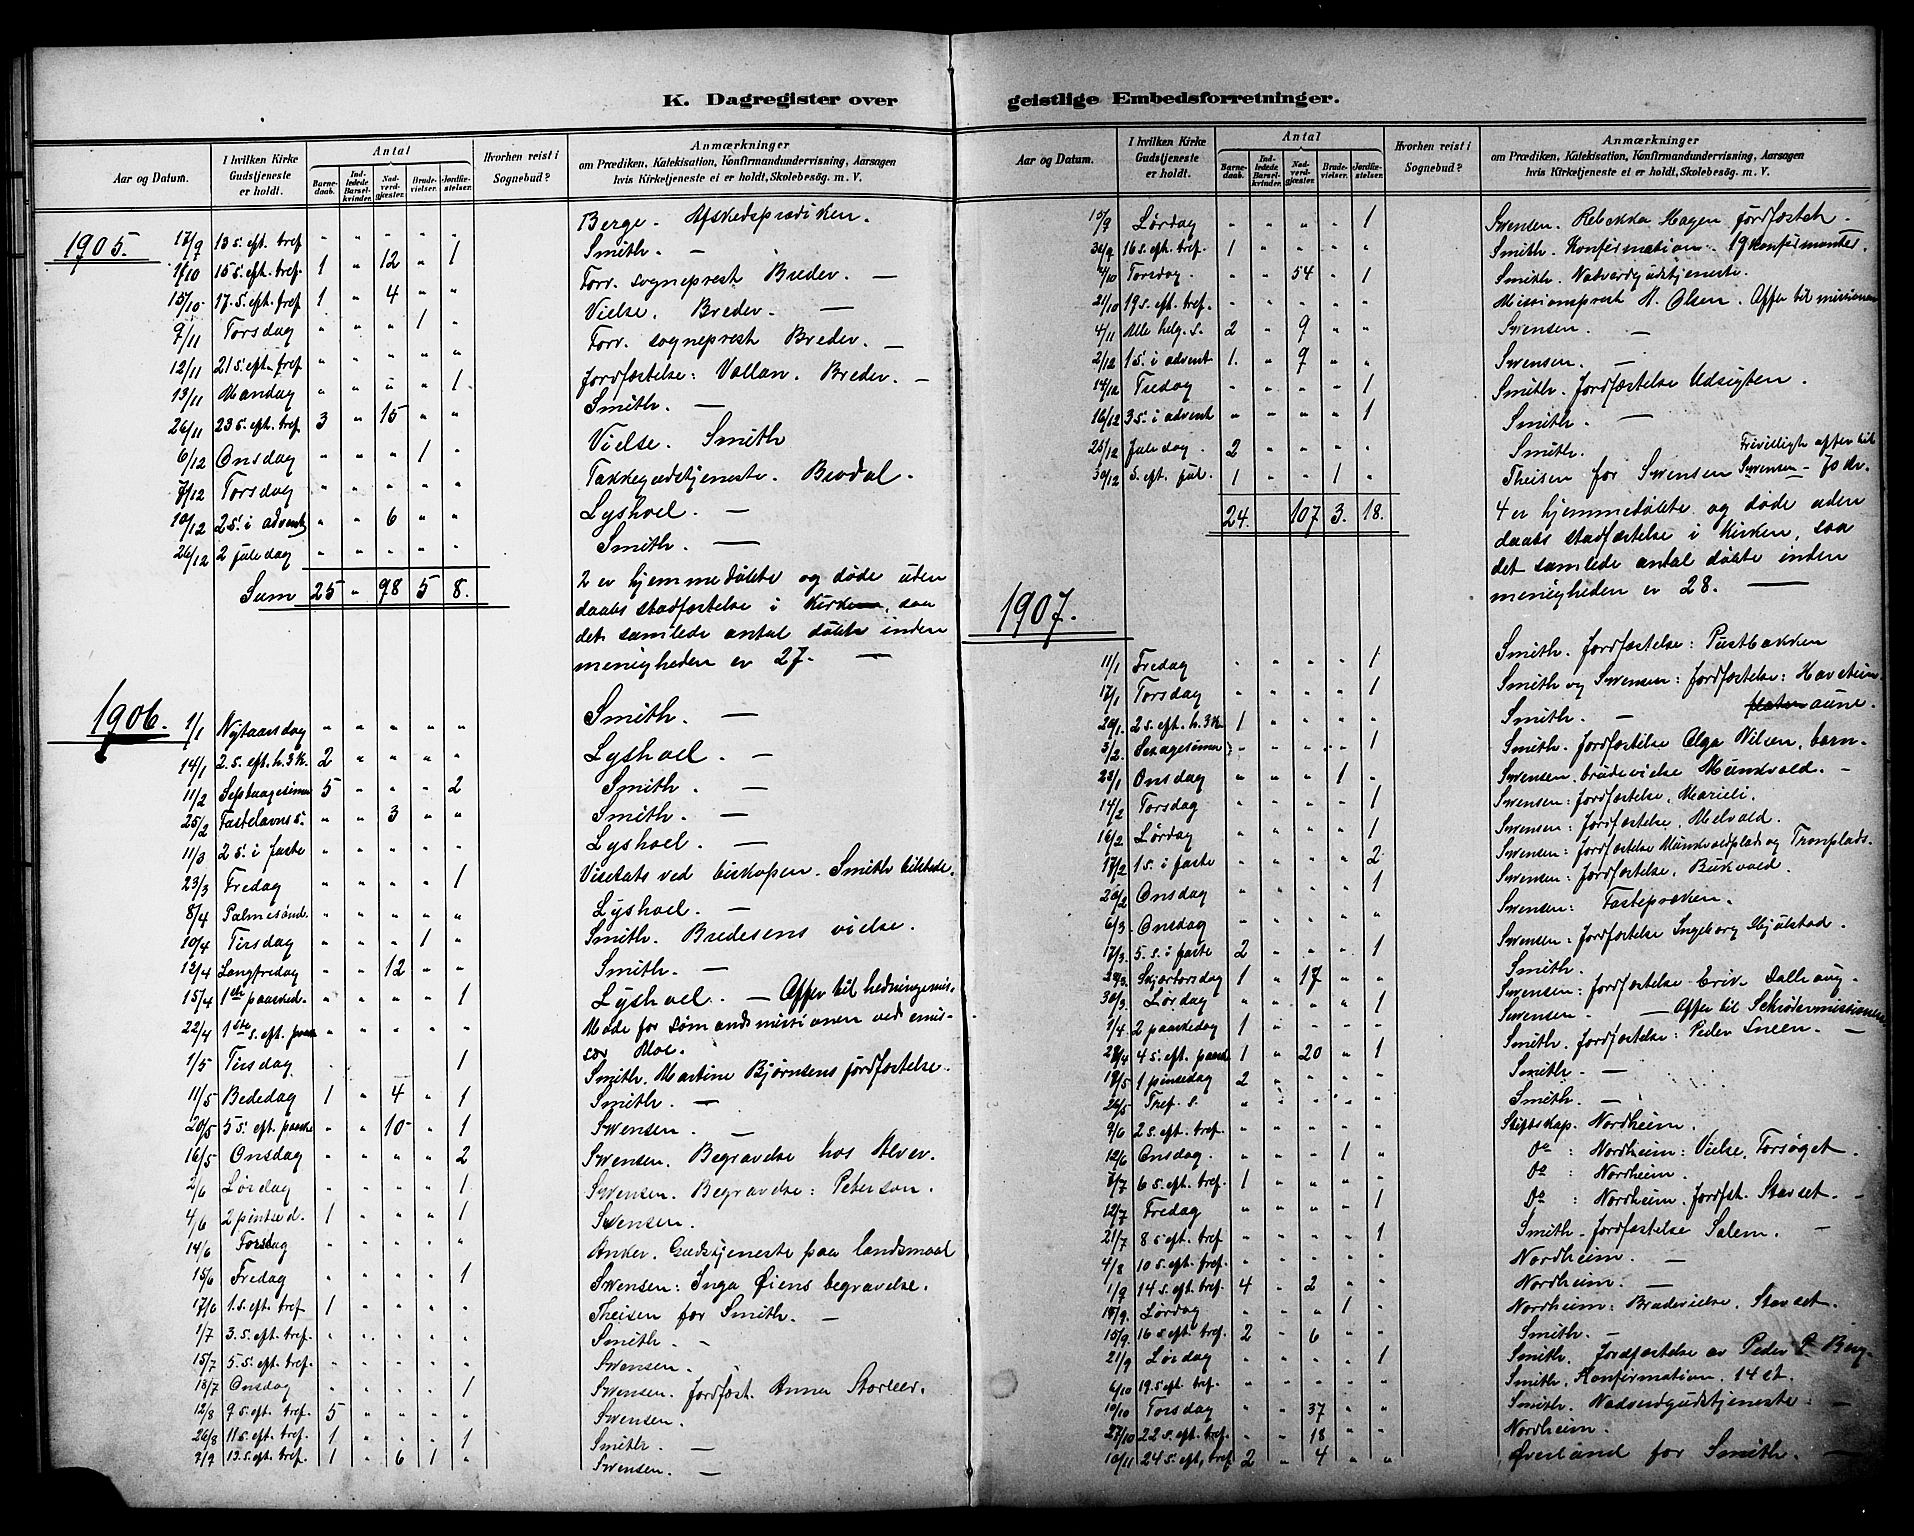 K. Dagregister over geistlige Embedsforretninger.
Aar og Datum. I hvilken Kirke Gudstjeneste er holdt. Antal Barnedaab. Indledede Barselkvinder. Nadverdgjester. Brudevielser. Jordfæstelser. Hvorhen reist i Sognebud? Anmærkninger om Prædiken, Katekisation, Konfirmandundervisning, Aarsagen hvis Kirketjeneste ei er holdt, Skolebesög. m. V.
1905. 17/9 13 s. eft. tref. " " " " " Berge. Afskedsprædiken.
1/10 15 s. eft. tref. 1 " 12 " 1 Smith. —
15/10 17. s. eft. tref 1 " 4 " " Forr. sogneprest Breder. —
9/11 Torsdag " " " 1 " Vielse. Breder. —
12/11 21 s. eft. tref " " " " " Forr. sogneprest Breder. —
13/11 Mandag " " " " 1 Jordfæstelse: Vollan. Breder. —
26/11 23 s. eft. tref 3 " 15 " " Smith. —
6/12 Onsdag " " " 1 " Vielse. Smith
7/12 Torsdag " " " " " Takkegudstjeneste. Brodal.
10/12 2 s. i advent " " 6 " " Lyshoel. —
26/12 2 juledag " " " " " Smith. —
Sum 25 " 98 5 8. 2 er hjemmedøbte og døde uden
daabs stadfæstelse i kirken, saa
det samlede antal døbte inden
menigheden er 27. —
1906. 1/1 Nytaarsdag " " " " " Smith. —
14/1 2. s. eft. h. 3 k. 2 " " " " Lyshoel. —
11/2 Septuagesima 5 " " " 2 Smith. —
25/2 Fastelavns s. " " 3 " " Smith. —
11/3 2 s. i faste " " " " " Lyshoel. —
23/3 Fredag " " " " 1 Visitats ved biskopen. Smith tilstede.
8/4 Palmesønd. " " " " " Lyshoel. —
10/4 Tirsdag " " " 1 " Smith. Bredesens vielse.
12/4 Langfredag " " 12 " " Smith. —
15/4 1ste paasked. " " " " 1 Lyshoel. — Offer til hedningemis-
22/4 1ste s. eft. paas " " " " " Møde for sømandsmissionen ved emis-
sær Moe.
1/5 Tirsdag 1 Smith. Martine Bjørnsens jordfæstelse.
11/5 Bededag 1 " 4 " 1 Smith. —
20/5 5 s. eft. paaske " " 10 " 1 Swensen. —
16/5 Onsdag " " " " 2 Swensen. Begravelse hos Alver.
2/6 Lørdag " " " " 1 Swensen. Begravelse: Peterson.
4/6 2 pintsed. 1 " " " 1 Swensen.
14/6 Torsdag " " " " " Anker. Gudstjeneste paa landsmaal
15/6 Fredag " " " " 1 Swensen: Inga Øiens begravelse.
17/6 1. s. eft. tref 1 " " " " Theisen for Smith. —
1/7 3. s. eft. tref. " " " " " Smith. —
15/7 5. s. eft. tref. " " " " " Swensen.
18/7 Onsdag " " " " 1 Swensen. Jordfæst. Anna Storleer.
12/8 9 s. eft. tref. 5 " " " " Swensen.
26/8 11 s. eft. tref. 1 " " " 1 Smith. —
9/9 13. s. eft. tref. 1 " 6 1 " Swensen. —
Aar og Datum. I hvilken Kirke Gudstjeneste er holdt. Antal Barnedaab. Indledede Barselkvinder. Nadverdgjester. Brudevielser. Jordfæstelser. Hvorhen reist i Sognebud? Anmærkninger om Prædiken, Katekisation, Konfirmandundervisning, Aarsagen hvis Kirketjeneste ei er holdt, Skolebesög. m. V.
15/9 Lørdag " " " " 1 Swensen. Rebekka Hagen jordfæstet.
30/9 16 s. eft. tref. 1 " " " " Smith. Konfirmation. 19 konfirmanter.
4/10 Torsdag. " " 54 " 1 Smith. Natverdgudstjeneste.
21/10 19 s. eft. tref. " " " " " Missionsprest N. Olsen. Offer til missionen
4/11 Alle helg. s. 2 " 9 " " Swensen. —
2/12 1 s. i advent 1. " 9 " " Swensen. —
14/12 Fredag " " " " 1 Smith. Jordfæstelse Udsigten.
16/12 3 s. i advent " " " " 1 Smith. —
25/12 Juledag. 2 " " " " Smith. Frivilligt offer til
30/12 S. eft. jul. 1 " " 1 " Theisen for Swensen Swensen —
24. 107 3. 18. 4 er hjemmedøbte og døde uden
daabs stadfæstelse i kirken, saa
det samlede antal døbte inden
menigheden er 28. —
1907.
11/1 Fredag " " " " 1 Smith. Jordfæstelse: Pustbakken
17/1 Torsdag " " " " 1 Smith og Swensen: Jordfæstelse: Havstein
20/1 2 s. eft. h. 3 k. 1 " " " " Smith. — aune.
3/2. Sexagesima " " " " 1 Smith. Jordfæstelse Olga Nilsen, barn
23/1 Onsdag " " " 1 " Swensen. brudevielse Munkvold. —
14/2 Torsdag " " " " 1 Swensen: Jordfæstelse. Marieli.
16/2 Lørdag " " " " 1 Swensen: Jordfæstelse. Melvold.
17/2 1 s. i faste " " " " 2 Swensen: Jordfæstelse Munkvoldplads og Tromplads.
20/2 Onsdag " " " " 1 Swensen: Jordfæstelse. Bukvold.
6/3 Onsdag " " " " " Swensen: Fastepræken.
17/3 5. s. i faste 2 " " " 1 Swensen: Jordfæstelse Ingeborg Gjølstad.
28/3. Skjærtorsdag 1 " 17 " " Smith.
30/3 Lørdag " " " " 1 Swensen: Jordfæstelse Erik Dalhaug
1/4 2 paaskedag 1 " " " " Swensen. — Offer til Schrødermissionen
28/4 4 s. eft. paaske 1 " 20 " 1 Smith. Jordfæstelse: Peder Sneen. —
19/5 1 pinsedag 2 " " " " Smith. —
26/5 Tref. s. " " " " " Smith. —
9/6 2 s. eft. tref. Stiftskap. Nordheim.
12/6 Onsdag. " " " 1 " Do : Nordheim: Vielse. Forsøget.
7/7 6 s. eft. tref. 1 " " " " Do : Nordheim.
12/7 Fredag " " " " 1 Do : Nordheim. Jordfst. Stavset. —
21/7 8 s. eft. tref " " " " 1 Smith. Jordfæstelse Salem. —
4/8 10 s. eft. tref. " " " " " Nordheim. —
1/9 14 s. eft. tref. 4 " 2 " " Nordheim. —
14/9. Lørdag " " " 1 " Nordheim: Brudevielse. Stavset.
15/9 16 s. eft. tref 2 " 6 " " Smith. —
21/9 Lørdag " " " " 1 Smith. Jordfæstelse av Peder P Berg.
6/10 19. s. eft. tref. " " " " " Smith. Konfirmation. 14 st.
10/10 Torsdag " " 37 " " Smith. Nadverdgudstjeneste. —
27/10 22 s. eft. tref. " " 18 " " Nordheim.
10/11 24 s. eft. tref 2 " 4 " " Øverland for Smith. —